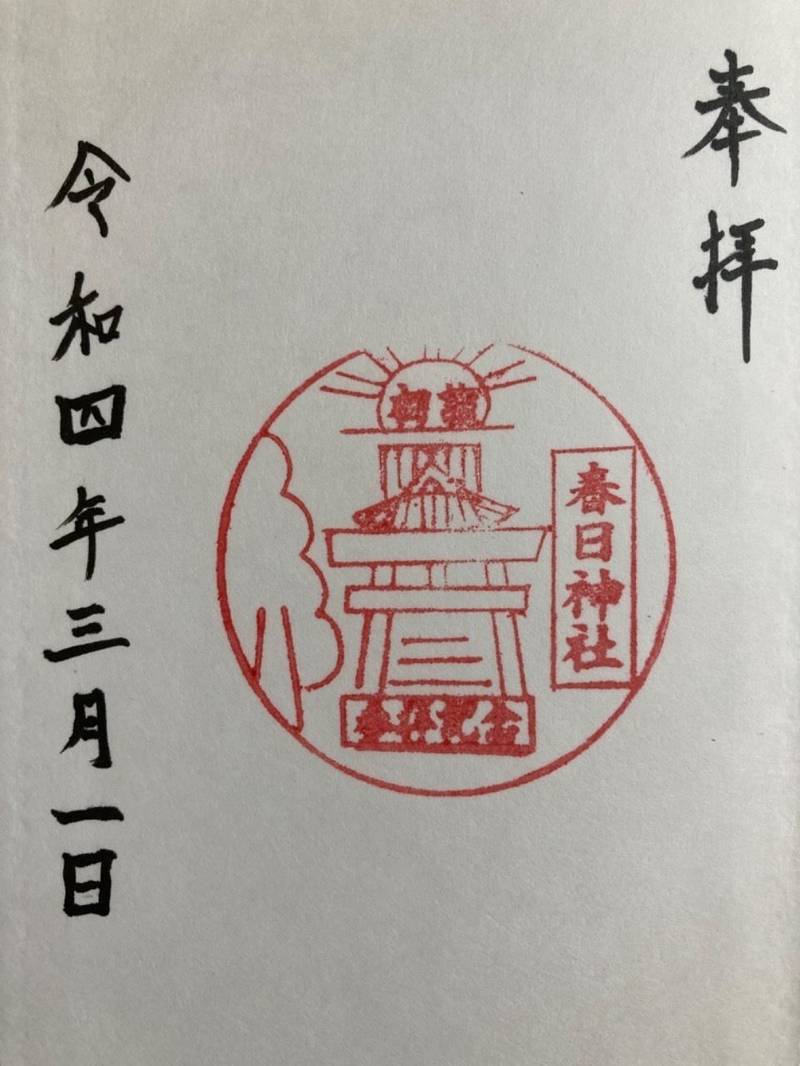 奉拝
春日神社
令和四年三月一日